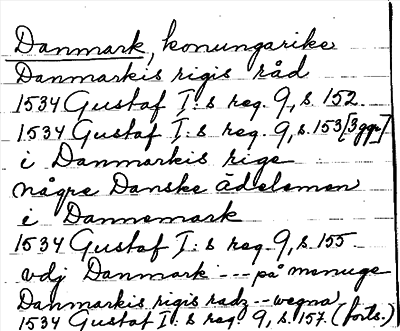 Danmark, konungarike
Danmarkis rigis råd
1534 Gustaf I:s reg. 9, s. 152.
1534 Gustaf I:s reg. 9, s. 153 [3 ggr]
i Danmarkis rige
någre Danske ädelsmen
i Dannemark
1534 Gustaf I:s reg. 9, s. 155
vdj Danmark --- på menuge
Danmarkis rigis radz -- wegna
1534 Gustaf I:s reg. 9, s. 157. (forts.)